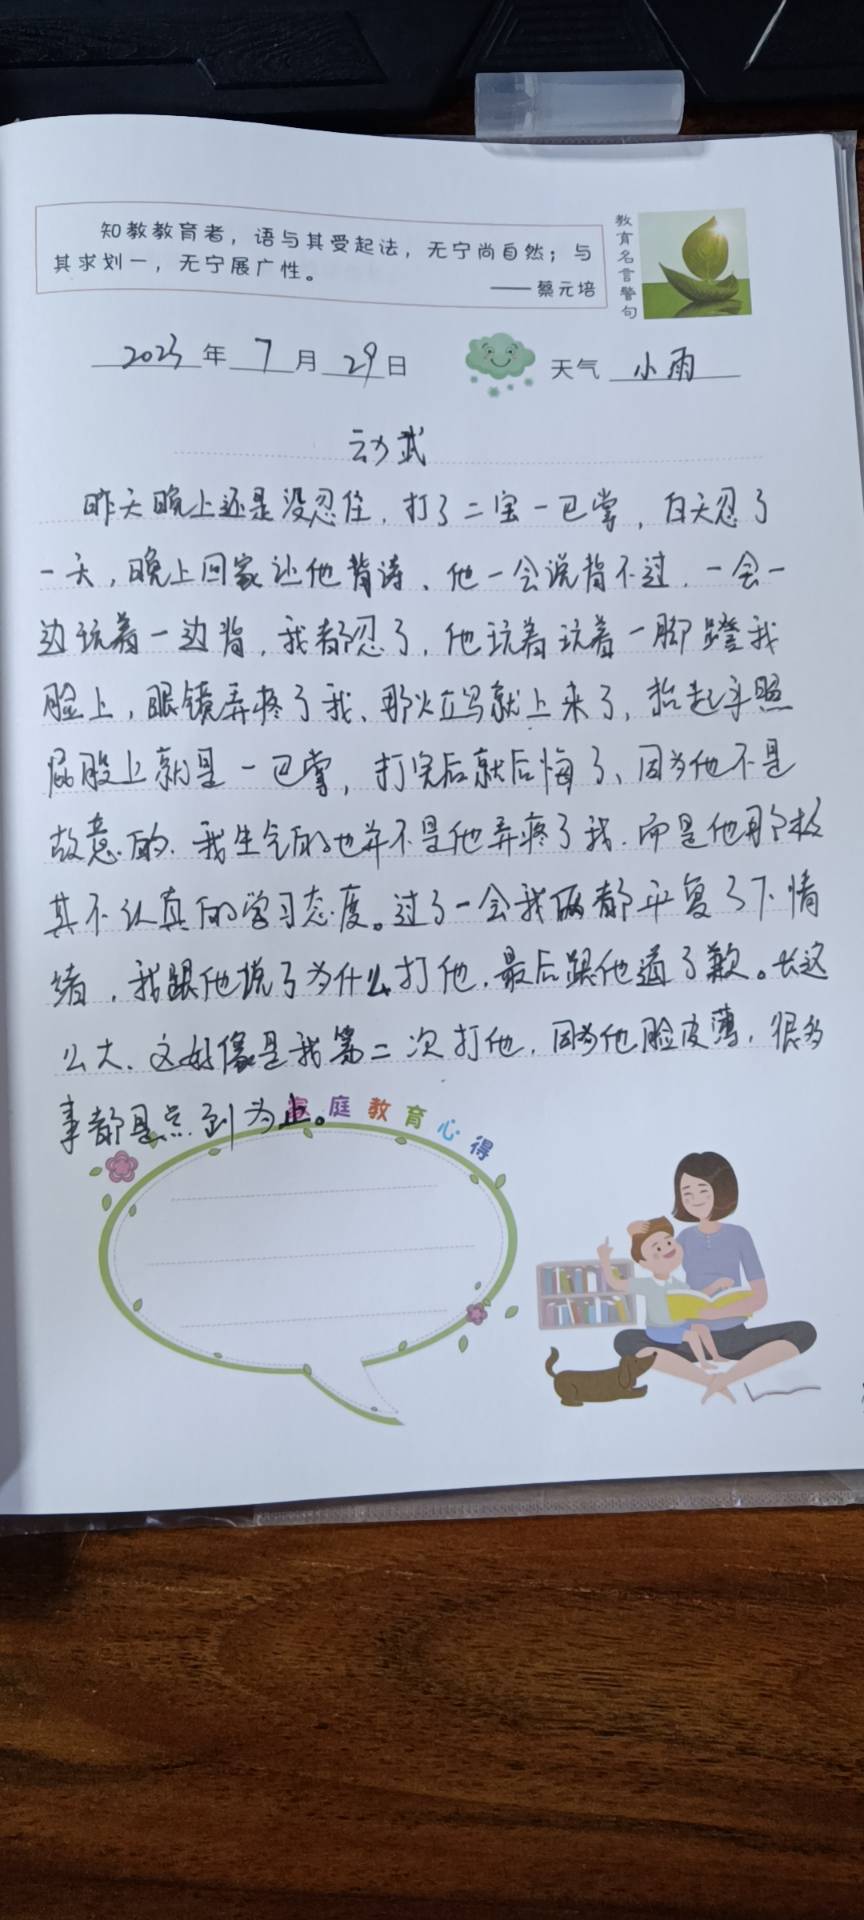 知教教育者，语与其受起法，无宁尚自然；与
其求划一，无宁展广性。
——蔡元培
教育名言警句
2023年7月29日 天气 小雨
动武
昨天晚上还是没忍住，打了二宝一巴掌，白天忍了
一天，晚上回家让他背诗、他一会说背不过，一会一
边玩着一边背，我都忍了，他玩着玩着一脚蹬我
脸上，眼镜弄疼了我、那火立马就上来了，抬起手照
屁股上就是一巴掌，打完后就后悔了、因为他不是
故意的．我生气的也并不是他弄疼了我．而是他那极
其不认真的学习态度。过了一会我俩都平复了下情
绪，我跟他说了为什么打他，最后跟他道了歉。长这
么大、这好像是我第二次打他，因为他脸皮薄，很多
事都是点到为止。
家庭教育心得